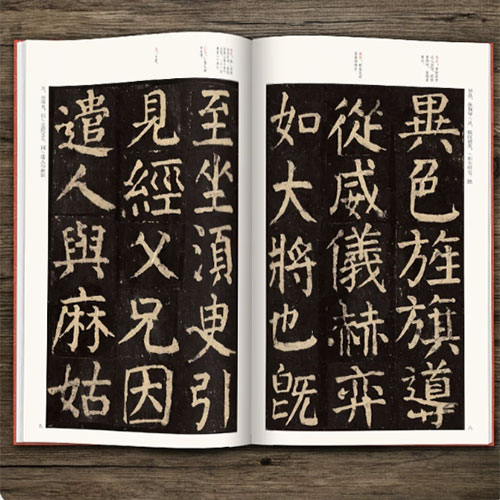 異色旌旗導
從威儀赫弈
如大將也既
至坐湏臾引
見經父兄因
遣人與麻姑